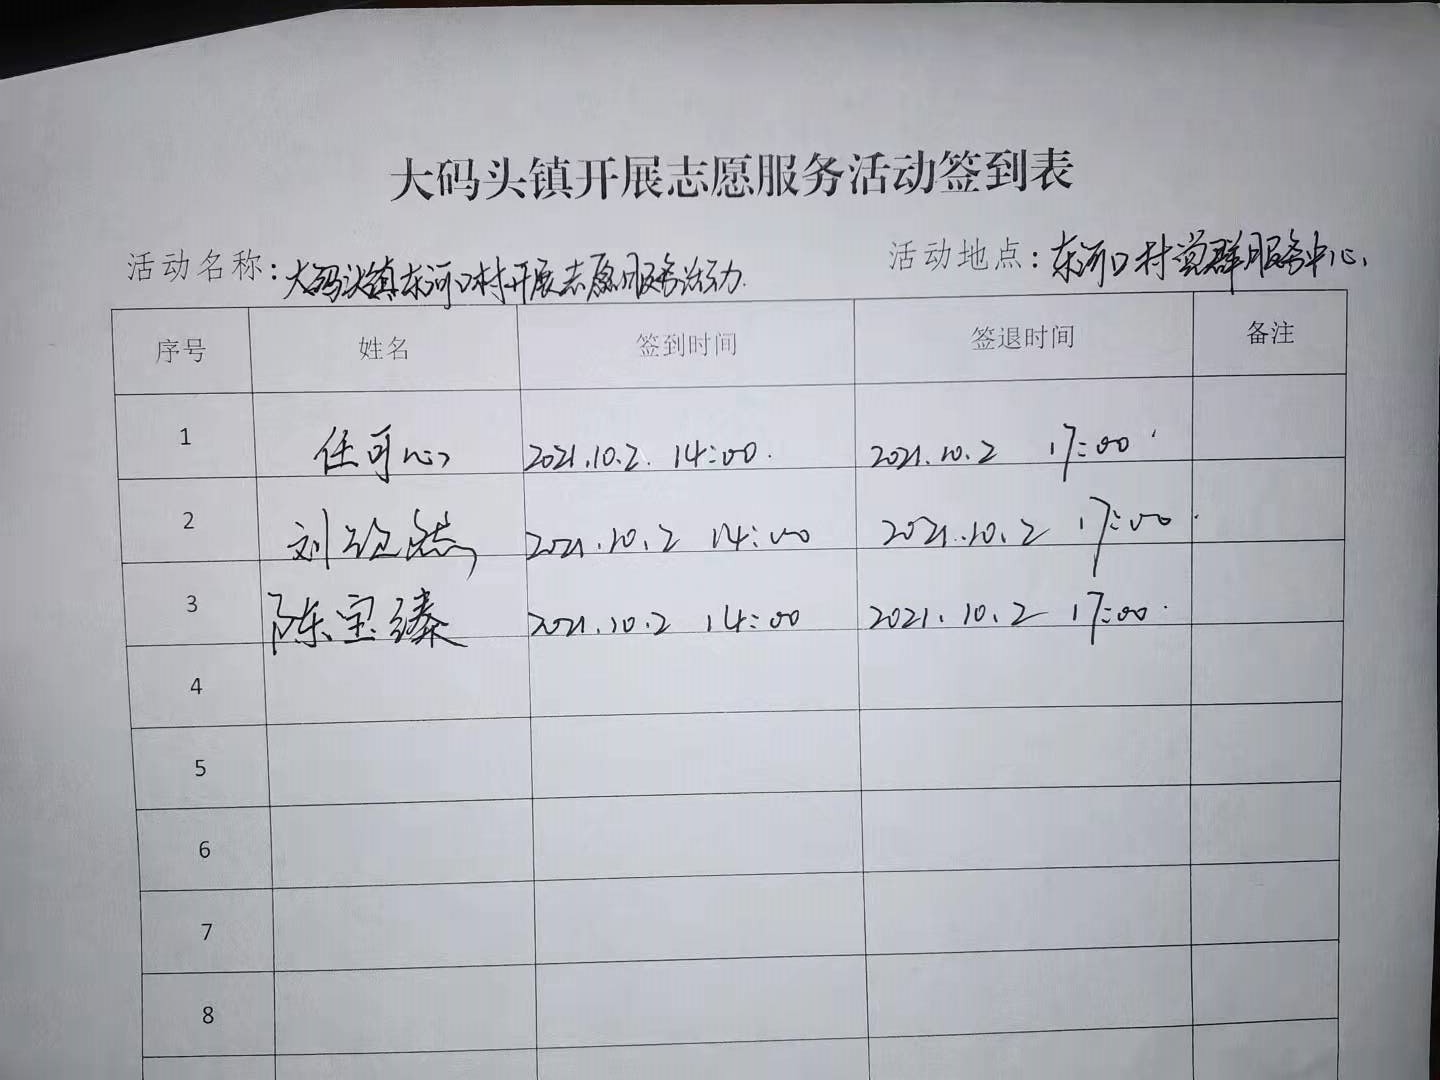 大码头镇开展志愿服务活动签到表
活动名称:大码头镇东河口村开展志愿服务活动. 活动地点:东河口村党群服务中心.
序号 姓名 签到时间 签退时间 备注
1 任可心 2021.10.2. 14:00. 2021.10.2 17:00.
2 刘 然 2021.10.2 14:00 2021.10.2 17:00.
3 陈宝臻 2021.10.2 14:00 2021.10.2 17:00.
4
5
6
7
8